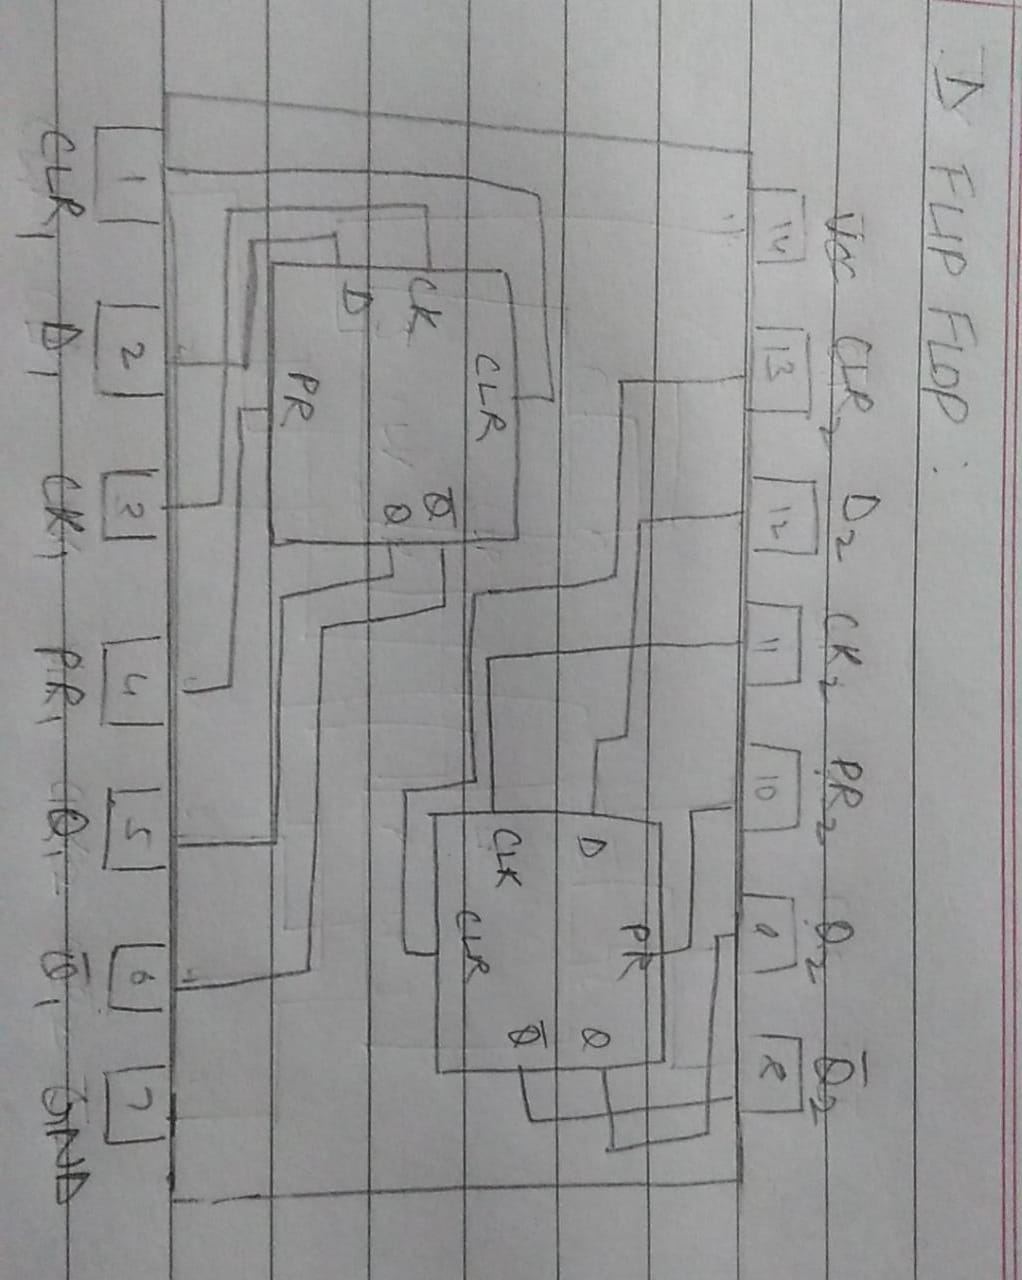 D FLIP FLOP:
Vcc CLR2 D2 CK2 PR2 Q2 Q̅2
14 13 12 11 10 9 8
PR
D Q
CLK Q̅
CLR
CLR
CK Q̅
D Q
PR
1 2 3 4 5 6 7
CLR1 D1 CK1 PR1 Q1 Q̅1 GND